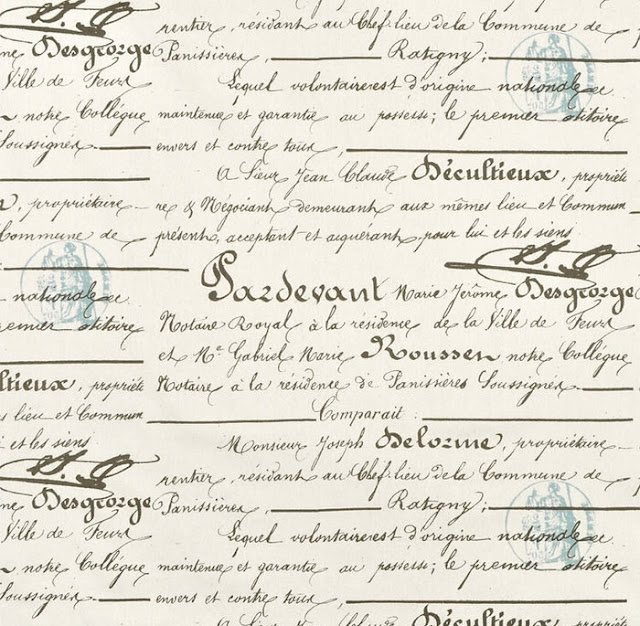 rentier, résidant au Chef-lieu de la Commune de
me Desgeorge Panissières, Ratigny;
Ville de Feurs Lequel volontaire est d'origine nationale et
notre Collègue maintenue et garantie au possess; le premier
Soussignés envers et contre tous,
A Sieur Jean Claude Décultieux, propriété
n, propriétaire re & Négociant demeurant aux mêmes lieu et Commun
Commune de présent, acceptant et acquérant, pour lui et les siens
Pardevant Marie Jérôme Desgeorge
nationale et Notaire Royal à la résidence de la Ville de Feurs
premier et Me Gabriel Marie Roussen notre Collègue
ltieux, propriété Notaire à la résidence de Panissières Soussignés
lieu et Commun Comparait :
et les siens Monsieur Joseph Delorme, propriétaire
rentier, résidant au Chef-lieu de la Commune de
me Desgeorge Panissières, Ratigny;
Ville de Feurs Lequel volontaire est d'origine nationale et
notre Collègue maintenue et garantie au possess; le premier
Soussignés envers et contre tous,
Décultieux, propriété